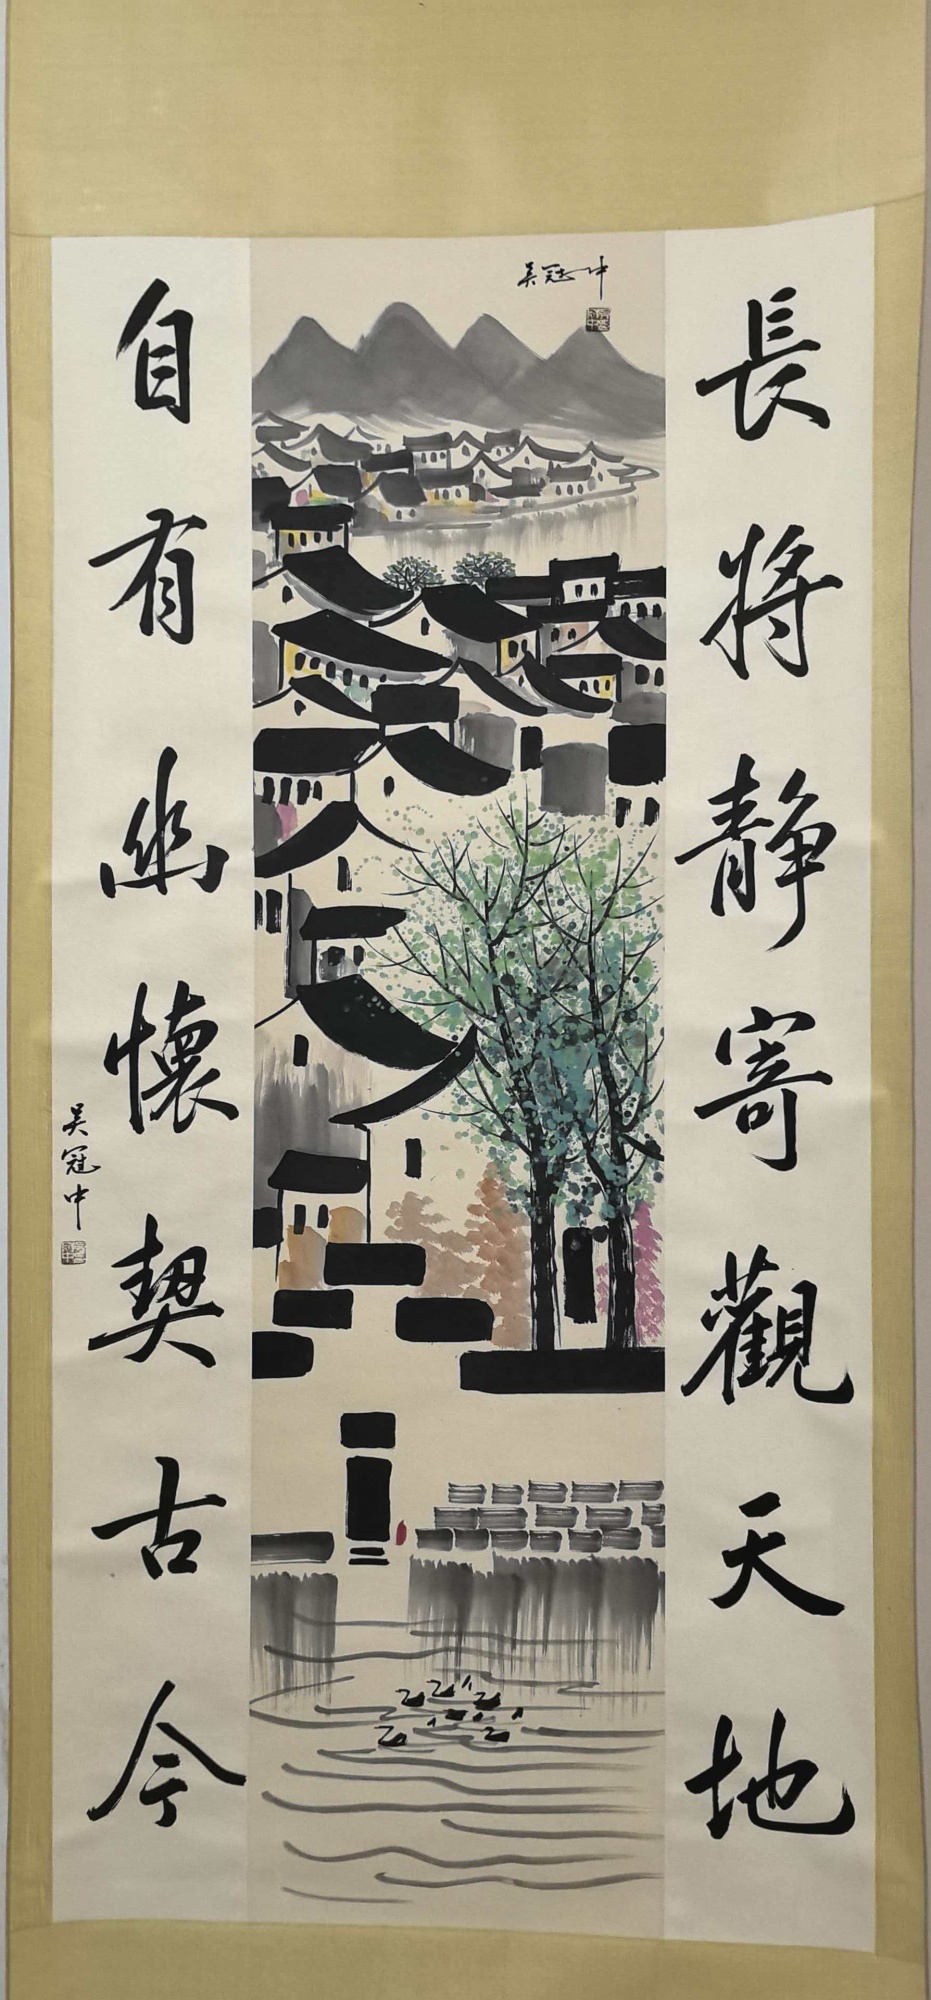 長將靜寄觀天地
吴冠中
自有幽懷契古今
吴冠中